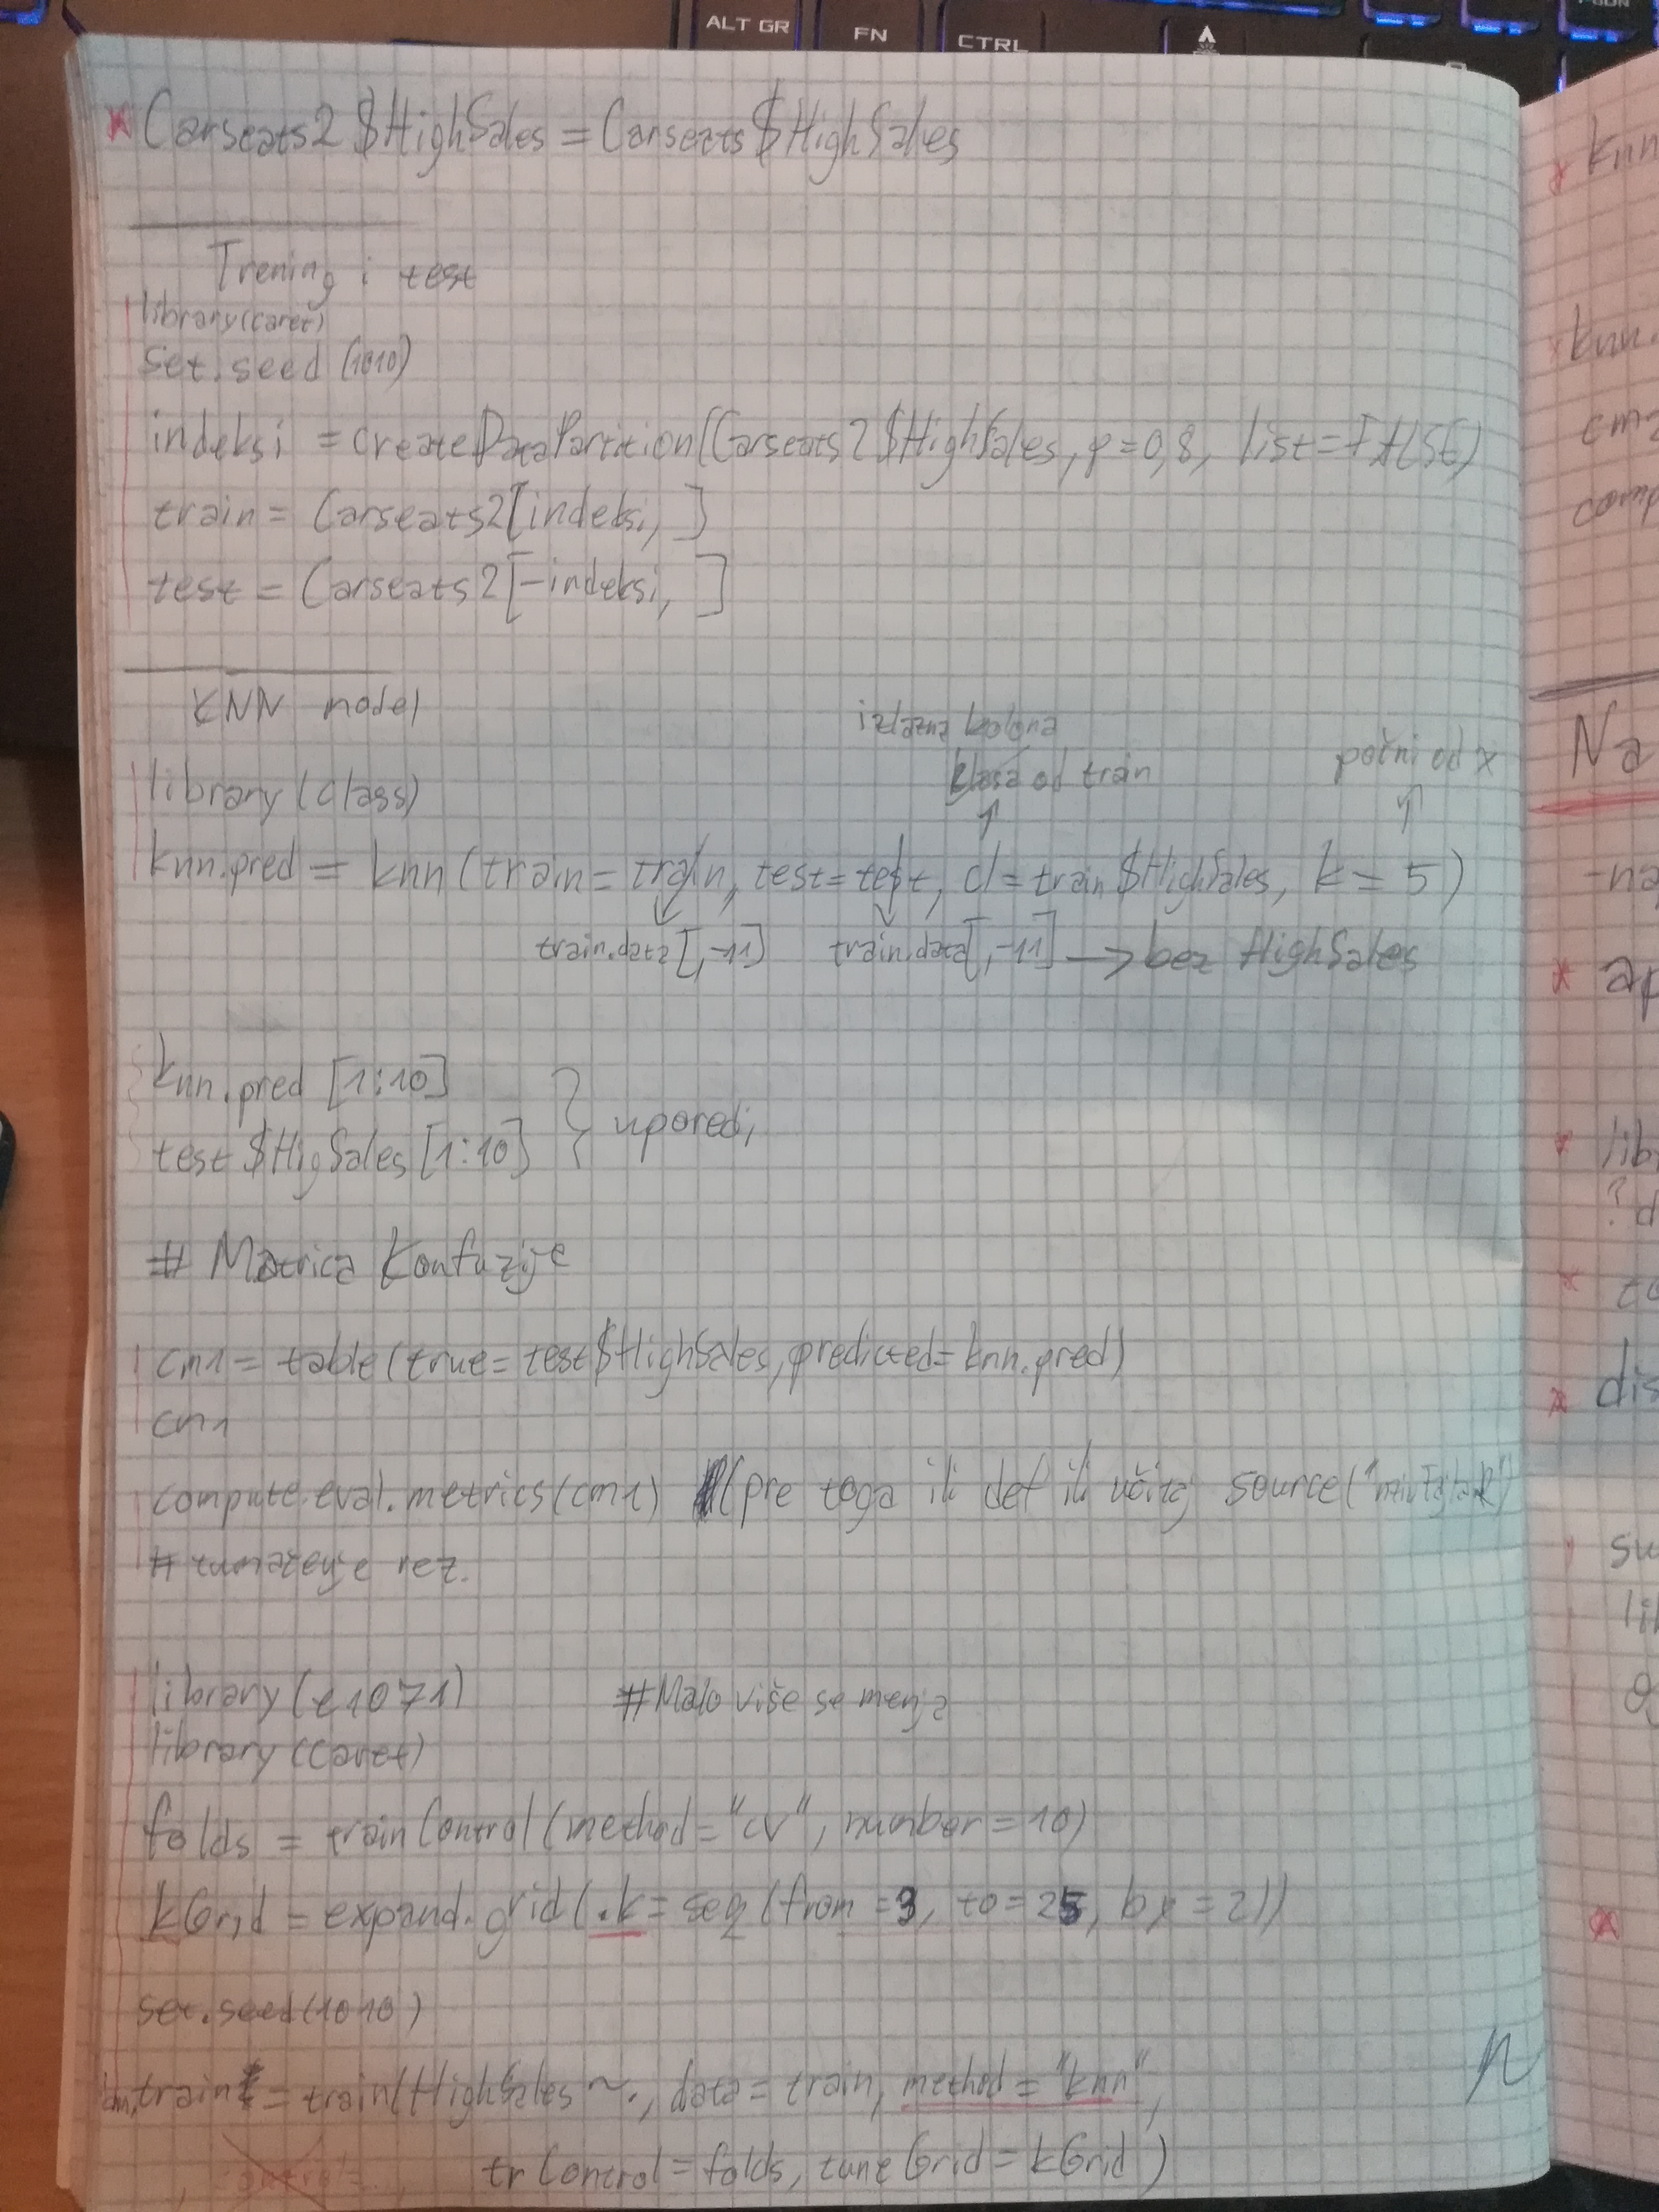 ALT GR
FN
CTRL
Carseats2$HighSales = Carseats$HighSales
Trening i test
library(caret)
set.seed(1010)
indeksi = createDataPartition(Carseats2$HighSales, p=0,8, list=FALSE)
train = Carseats2[indeksi, ]
test = Carseats2[-indeksi, ]
KNN model
izlazna kolona
klasa od train
počni od x
library(class)
knn.pred = knn(train=train, test=test, cl=train$HighSales, k=5)
train.data[,-11] train.data[,-11] → bez HighSales
knn.pred [1:10]
test$HigSales[1:10]
uporedi
# Matrica Konfuzije
cm1 = table(true=test$HighSales, predicted=knn.pred)
cm1
compute.eval.metrics(cm1) (pre toga ili def ili učitaj source("
# tumačenje rez.
library(e1071) #Malo više se menja
library(caret)
folds = trainControl(method="cv", number=10)
kGrid = expand.grid(.k=seq(from=3, to=25, by=2))
set.seed(1010)
train = train(HighSales ~., data=train, method="knn",
trControl=folds, tuneGrid=kGrid)
knn
knn.
comp
Na
-na
ap
lib
?d
dis
su